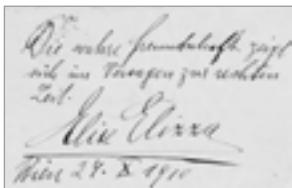 Die wahre Freundschaft zeigt
sich im Versagen zur rechten
Zeit.
Elise Elizza
Wien 24. X 1910